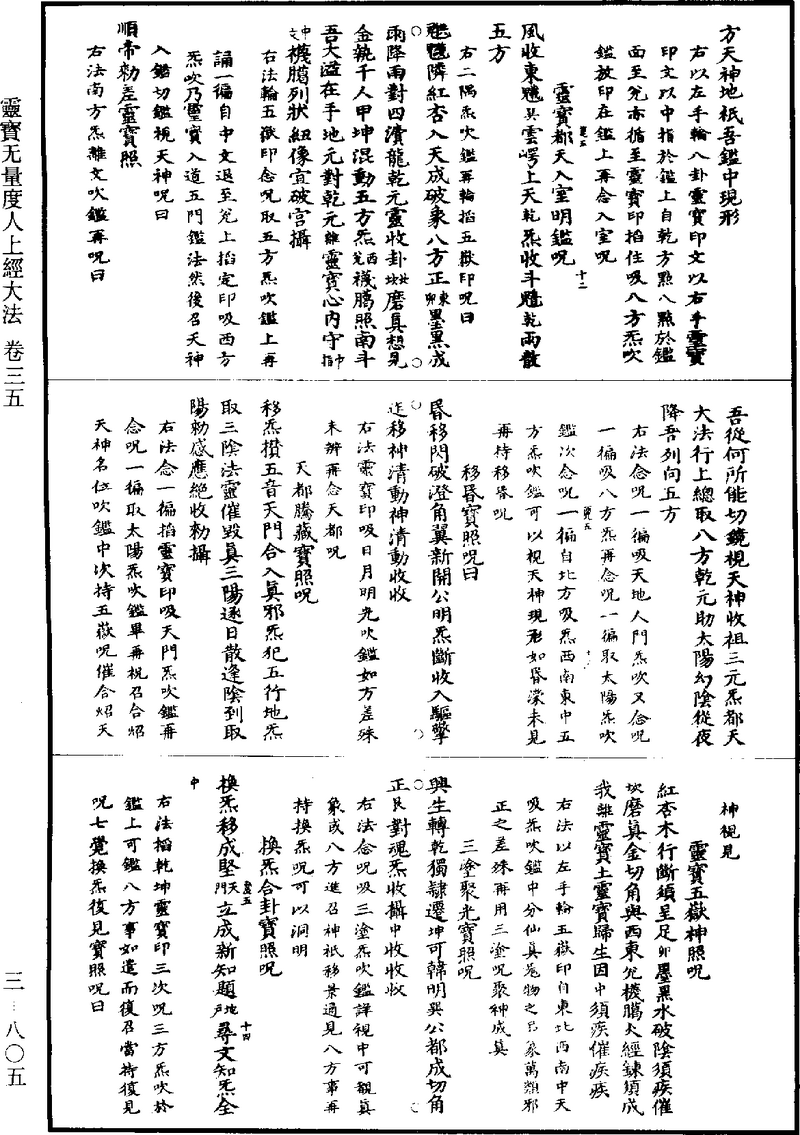 方天神地祇吾鑑中現形
右以左手輪八卦靈寶印文以右手靈寶
印文以中指於鑑上自乾方點八點於鑑
面至兌亦循至靈寶印掐住吸八方炁吹
鑑放印在鑑上再念入室呪
靈寶都天入室明鑑呪
風收東魒巽雲崿上天乾炁收斗魓乾雨散
五方
右二隅炁吹鑑再輪掐五嶽印呪曰
隣紅杏入天成破象八方正東卯墨黑成
雨降雨對四瀆龍乾元靈收卦北坎磨真想見
金執千人甲坤混動五方炁西兌襪臈照南斗
吾大溢在手地元對乾元離靈寶心內守中指
中文襪臈列狀紐像宜破宫攝
右法輪五嶽印念呪取五方炁吹鑑上再
誦一徧自中文退至兌上掐定印吸西方
炁吹乃靈寶入道五門鑑法然後召天神
入鑑切鑑視天神呪曰
順帝勑差靈寶照
右法南方炁離文吹鑑再呪曰
吾從何所能切鏡視天神收祖三元炁都天
大法行上總取八方乾元助太陽幻陰從夜
降吾列向五方
右法念呪一徧吸天地人門炁吹又念呪
一徧吸八方炁再念呪一徧取太陽炁吹
鑑次念呪一徧自北方吸炁西南東中五
方炁吹鑑可以視天神現形如昏濛未見
再持移昏呪
移昏寶照呪曰
昏移閃破澄角翼新開公明炁斷收入驅擎
迯移神清動神清動收收
右法靈寶印吸日月明光吹鑑如方差殊
未辨再念天都呪
天都騰藏寶照呪
移炁攢五音天門合入真邪炁犯五行地炁
取三陰法靈催毀真三陽逐日散逢陰到取
陽勑感應絕收勑攝
右法念一徧掐靈寶印吸天門炁吹鑑再
念呪一徧取太陽炁吹鑑畢再祝召合炤
天神名位吹鑑中次持五嶽呪催合炤天
神視見
靈寶五嶽神照呪
紅杏木行斷須呈足卯墨黑水破陰須疾催
坎磨真金切角與西東兌機臈火經鍊須成
我離靈寶土靈寶歸生因中須疾催疾疾
右法以左手輪五嶽印自東北西南中天
吸炁吹鑑中分仙真鬼物之呂象萬類邪
正之差殊再用三塗呪聚神成真
三塗聚光寶照呪
興生轉乾獨隷遷坤可韓明巽公都成切角
正艮對魂炁收攝中收收收
右法念呪吸三塗炁吹鑑詳視中可觀真
象或八方進召神祇移景通見八方事再
持換炁呪可以洞明
換炁合卦寶照呪
換炁移成堅天門立成新知題地戶尋文知炁全
中
右法掐乾坤靈寶印三次呪三方炁吹於
鑑上可鑑八方事如遣而復召當持復見
呪七覺換炁復見寶照呪曰
靈寶无量度人上經大法 卷三五
三—八〇五